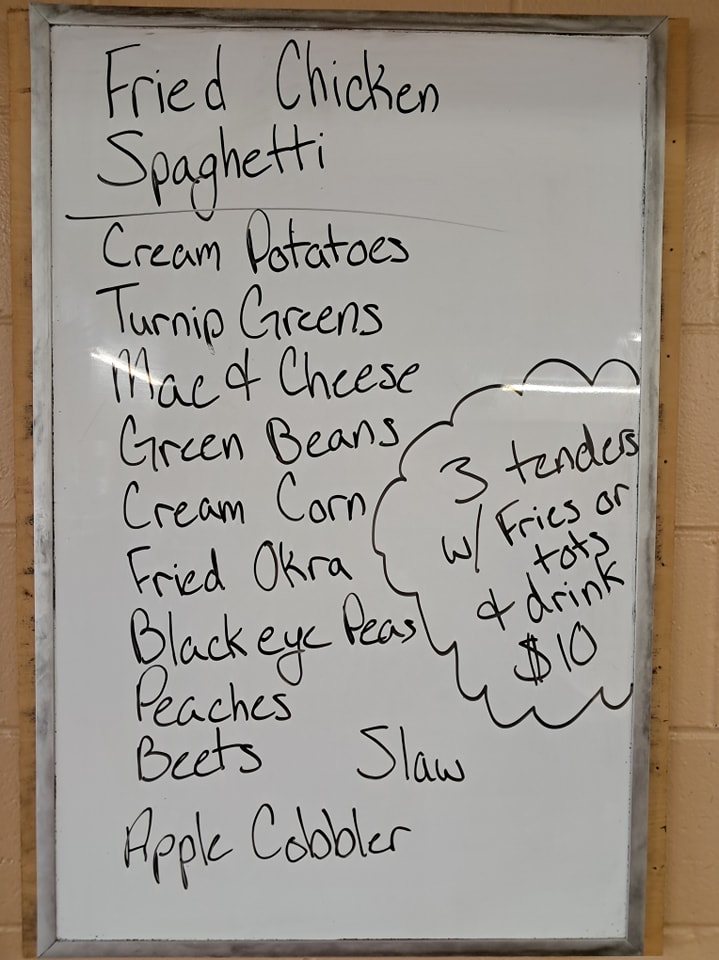 Fried Chicken
Spaghetti
Cream Potatoes
Turnip Greens
Mac & Cheese
Green Beans
Cream Corn
Fried Okra
Blackeye Peas
Peaches
Beets Slaw
Apple Cobbler
3 tenders
w/ Fries or
tots
& drink
$10